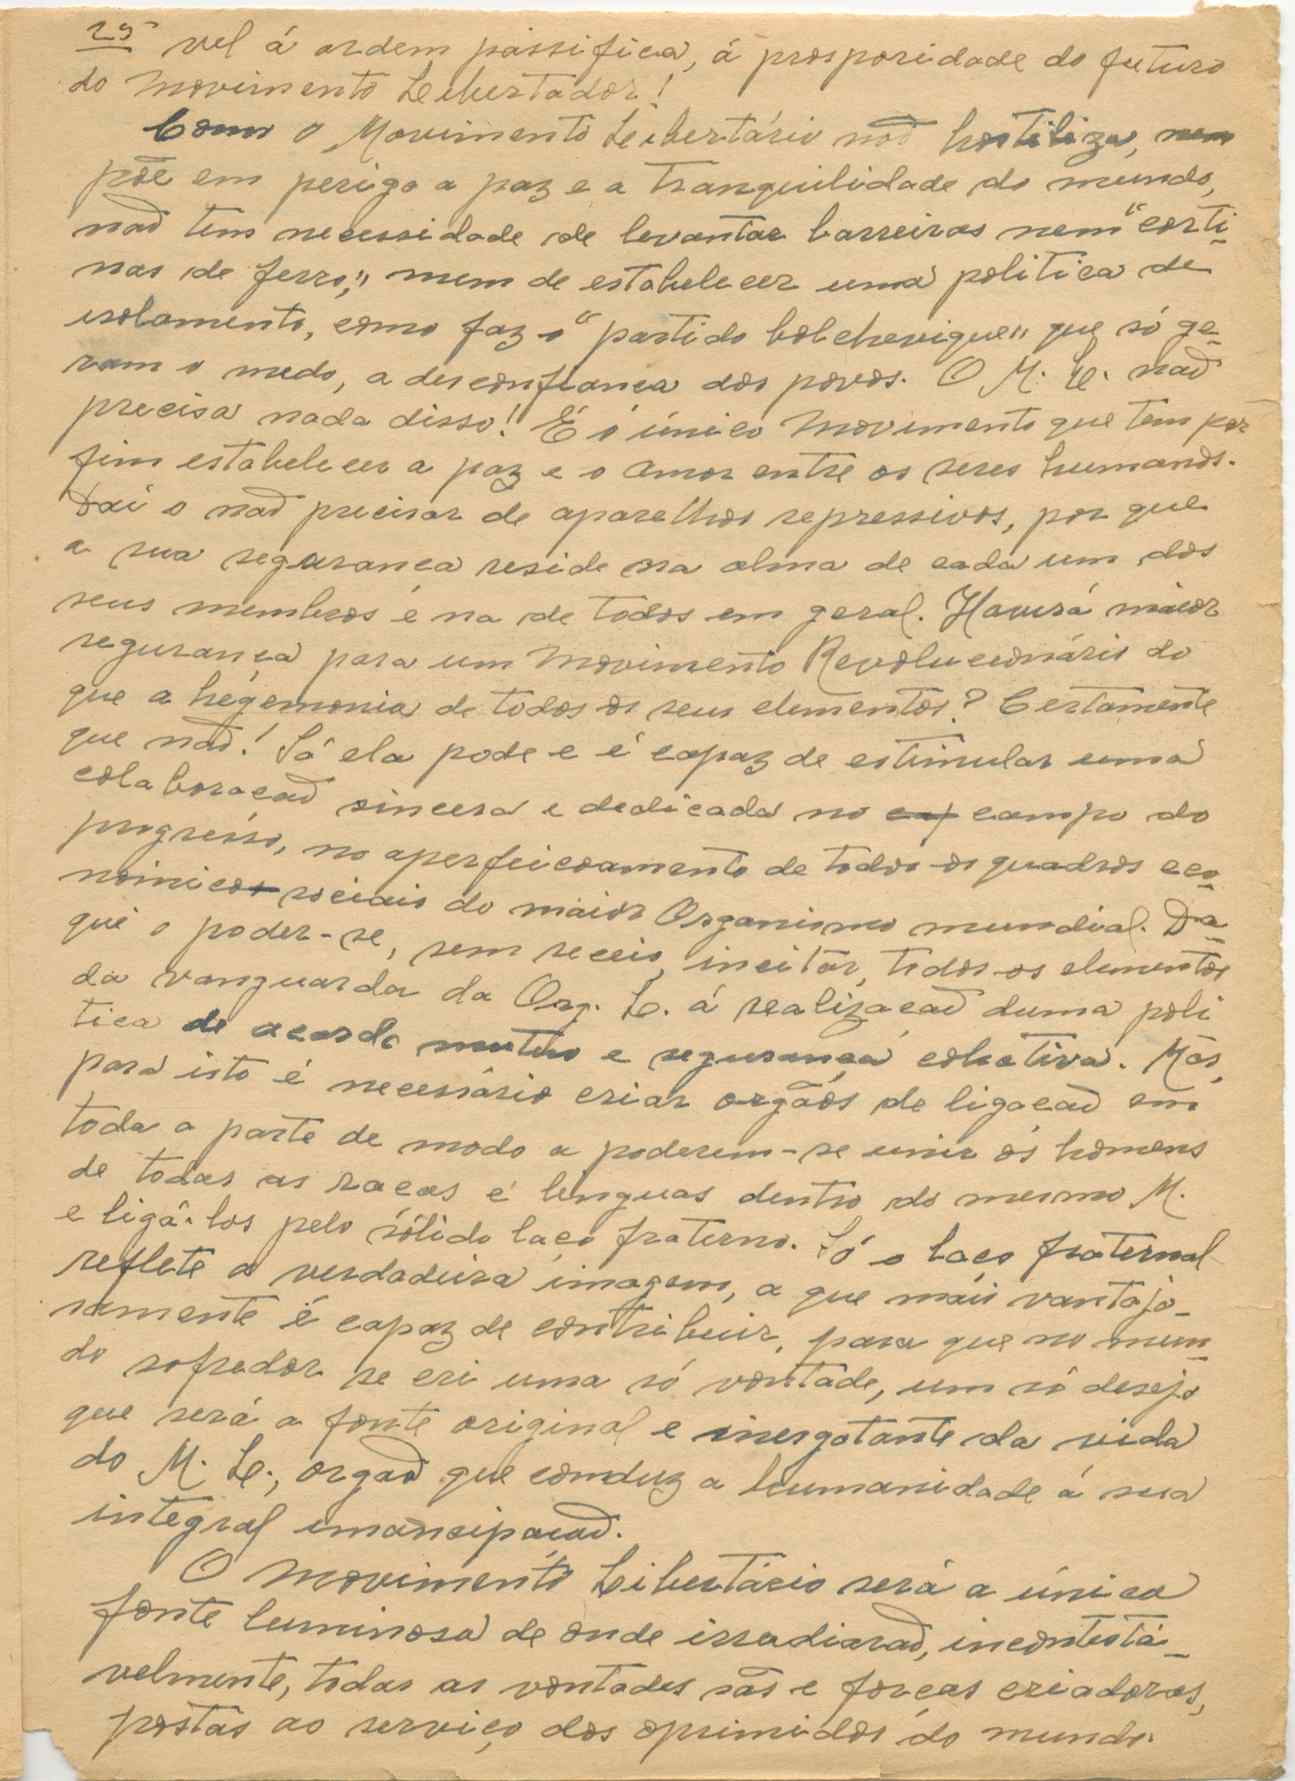 25 vel á ordem passifica, á prosporidade do futuro
do Movimento Libertador!
Como o Movimento Libertário naõ hostiliza, nem
põe em perigo a paz e a tranquilidade do mundo,
naõ tem necessidade de levantar barreiras nem "corti-
nas de ferro," nem de estabelecer uma politica de
isolamento, como faz o "partido bolchevique" que só ge-
ram o medo, a desconfianca dos povos. O M. L. naõ
precisa nada disso! É o único Movimento que tem por
fim estabelecer a paz e o amor entre os seres humanos.
Daí o naõ precisar de aparelhos repressivos, por que
a sua seguranca reside na alma de cada um dos
seus membros e na de todos em geral. Haverá maior
segurança para um Movimento Revolucionário do
que a hegemonia de todos os seus elementos? Certamente
que naõ! Só ela pode e é capaz de estimular uma
colaboracaõ sincera e dedicada no cap campo do
progresso, no aperfeicoamento de todos os quadros eco-
nómicos sociais do maior Organismo mundial. Da-
qui o poder-se, sem receio, incitar, todos os elementos
da vanguarda da Org. L. á realizacaõ duma poli
tica de acordo mutuo e segurança coletiva. Mas,
para isto é necessário criar orgãos de ligacaõ em
toda a parte de modo a poderem-se unir os homens
de todas as racas e linguas dentro do mesmo M.
e ligá-los pelo sólido laco fraterno. Só o laço fraternal
reflete a verdadeira imagem, a que mais vantajo-
samente é capaz de contribuir, para que no mun-
do sofredor se cri uma só vontade, um só desejo
que será a fonte original e inesgotante da vida
do M. L., orgaõ que conduz a humanidade á sua
integral imancipaçaõ.
O Movimento Libertário será a única
fonte luminosa de onde irradiaraõ, incontestá-
velmente, todas as vontades sãs e forcas criadoras,
postas ao serviço dos oprimidos do mundo.